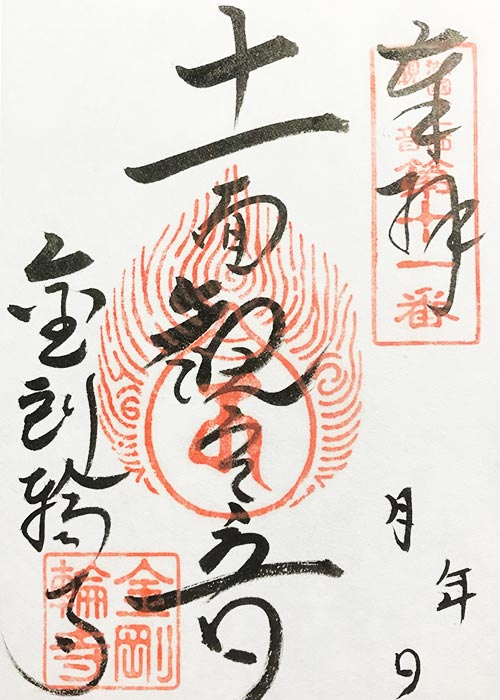 奉拝
第十一番
十一面観音
金剛輪寺
金剛
輪寺
年
月
日